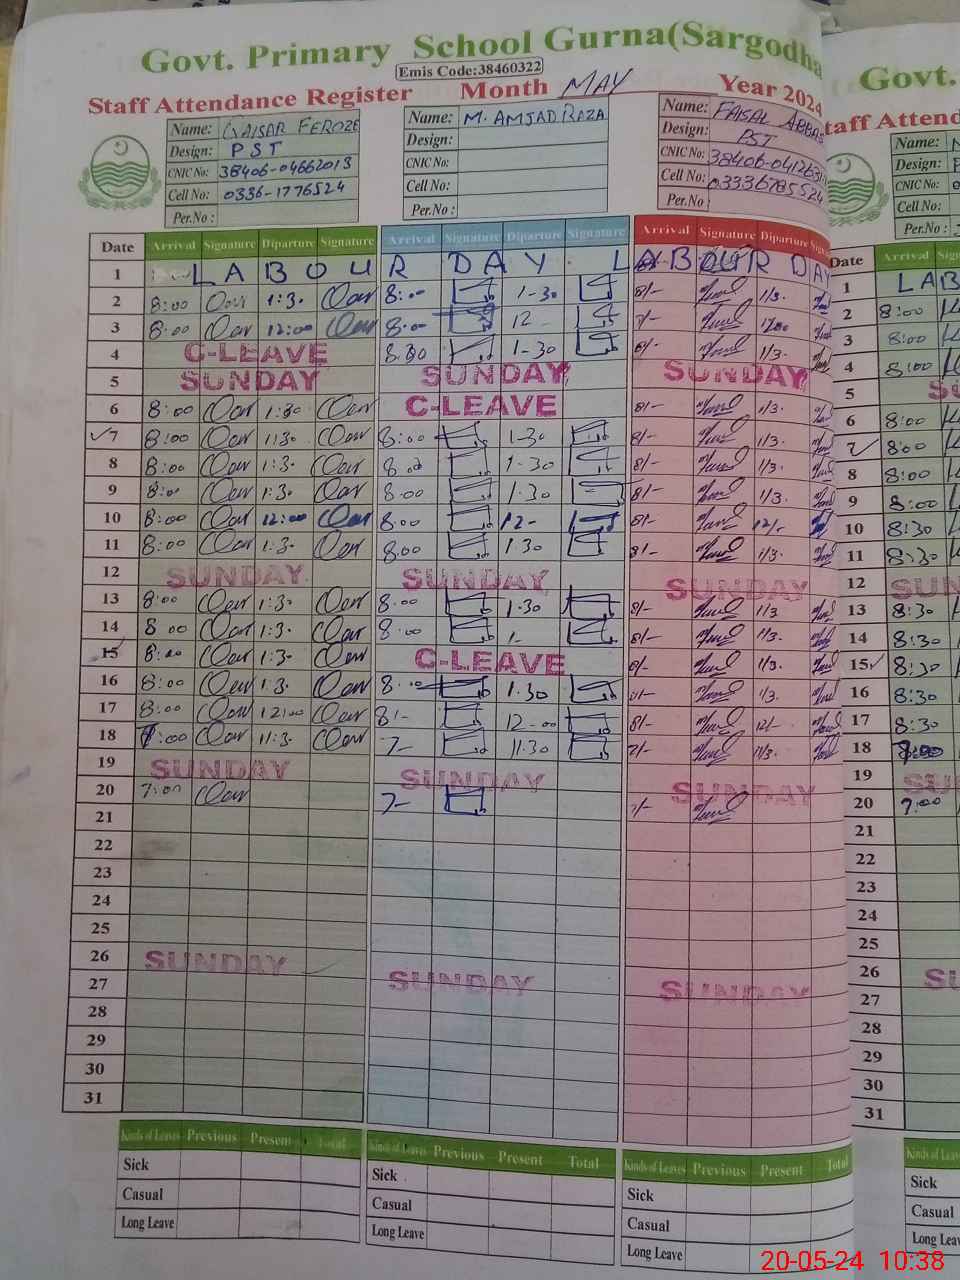 Govt. Primary School Gurna(Sargodha
Emis Code:38460322
Staff Attendance Register Month MAY Year 2024
Name: QAISAR FEROZE
Design: PST
CNIC No: 38406-04662013
Cell No: 0336-1776524
Per.No :
Name: M. AMJAD RAZA
Design:
CNIC No:
Cell No:
Per.No :
Name: FAISAL ABBAS
Design: PST
CNIC No:
Cell No:
Per.No
Date Arrival Signature Diparture Signature Arrival Signature Diparture Signature Arrival Signature Diparture
1 LABOUR DAY LABOUR DAY
2 8:00 1:3. 8:00 1-30 8/- 1/3.
3 8:00 12:00 8:00 12-
4 C-LEAVE 8.30 1-30 1/3.
5 SUNDAY SUNDAY SUNDAY
6 8:00 1:30 C-LEAVE 8/- 1/3.
7 8:00 1:30 8:00 1-30 8/- 1/3.
8 8:00 1:3. 1-30 8/- 1/3.
9 8:00 1:3. 8.00 1.30 8/- 1/3.
10 8:00 12:00 8.00 12- 8/- 12/-
11 8:00 1:3. 8.00 1.30 8/- 1/3.
12 SUNDAY SUNDAY SUNDAY
13 8:00 1:3. 8.00 1.30 8/- 1/3
14 8 00 1:3. 8.00 1- 8/- 1/3.
15 1:3. C-LEAVE 1/3.
16 8:00 1:3. 1.30 1/3.
17 8:00 12:00 8/- 12-00 8/- 12/-
18 7:00 11:3. 7- 11.30 7/- 11/3.
19 SUNDAY SUNDAY SUNDAY
20 7:00 7- 7/-
21
22
23
24
25
26 SUNDAY SUNDAY SUNDAY
27
28
29
30
31
Kinds of Leaves Previous Present Total
Sick
Casual
Long Leave
Kinds of Leaves Previous Present Total
Sick
Casual
Long Leave
Kinds of Leaves Previous Present Total
Sick
Casual
Long Leave
Govt.
taff Attend
Name:
Design:
CNIC No:
Cell No:
Per.No :
Date Arrival
1 LAB
2 8:00
3 8:00
4 8:00
5 SU
6 8:00
7 8:00
8 8:00
9 8:00
10 8:30
11 8:30
12 SUN
13 8:30
14 8:30
15 8:30
16 8:30
17 8:30
18
19 SU
20 7:00
21
22
23
24
25
26 SU
27
28
29
30
31
Kinds of Leave
Sick
Casual
Long Leave
20-05-24 10:38